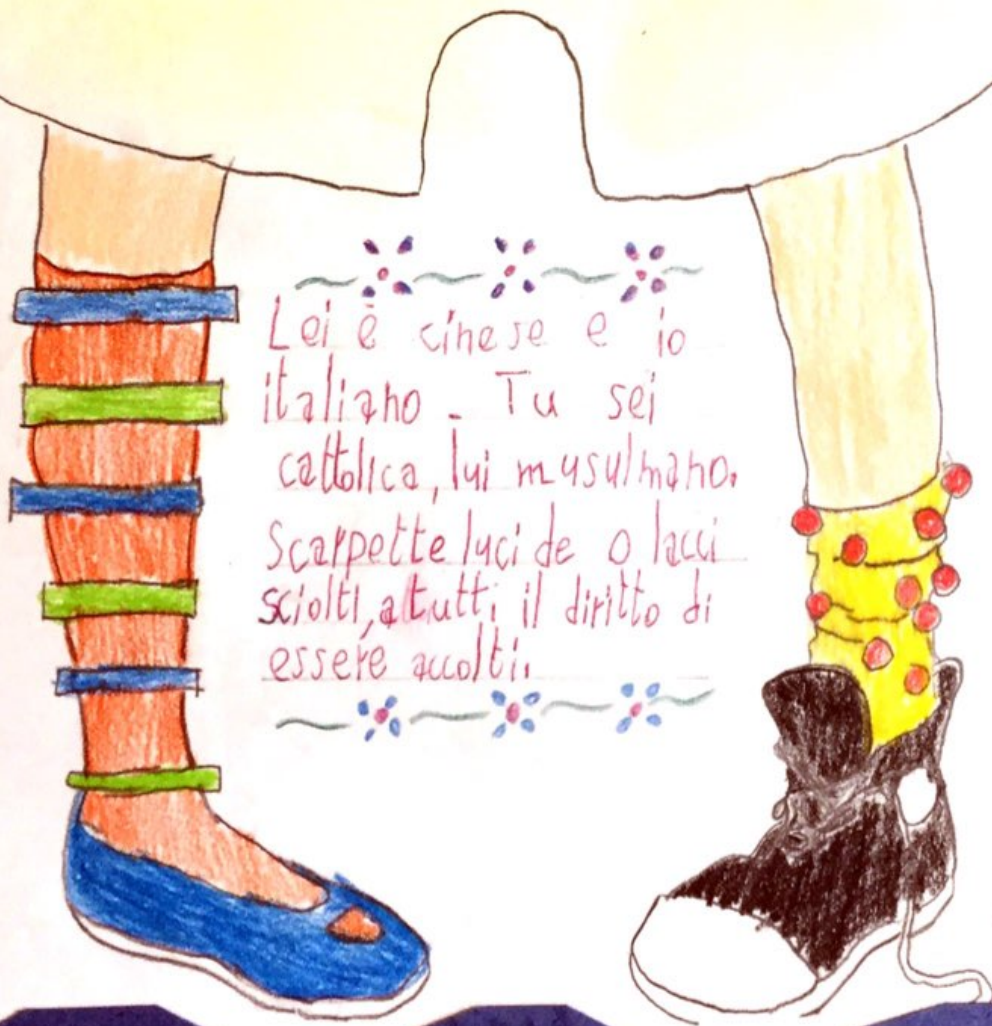 Lei è cinese e io
italiano. Tu sei
cattolica, lui musulmano.
Scarpette lucide o lacci
sciolti, a tutti il diritto di
essere accolti.